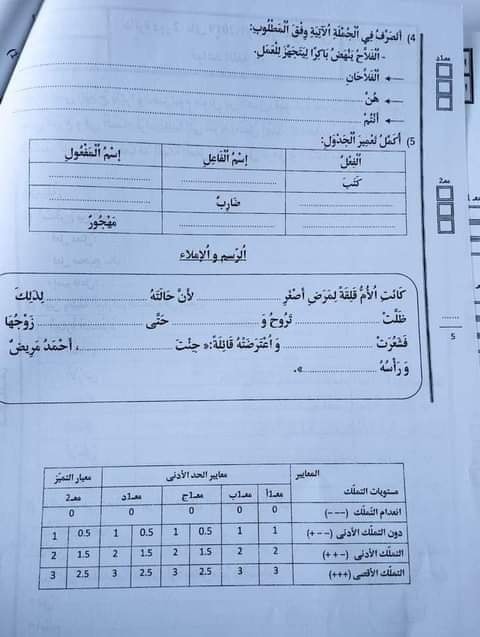 4) أتصرّف في الجملة الآتية وفق المطلوب:
- الفلّاح ينهض باكرا ليتجهّز للعمل.
الفلّاحان
هنّ
أنتمْ
5) أكمّل تعمير الجدول:
الفِعْلُ اِسْمُ الفَاعِلِ اِسْمُ المَفْعُولِ
كَتَبَ
ضَارِبٌ
مَهْجُورٌ
الرسم و الإملاء
كَانَتِ الأُمُّ قَلِقَةً لِمَرَضِ أَصْغَرِ ........ لأَنَّ حَالَتَهُ ........ لِذَلِكَ
ظَلَّتْ ........ تَرُوحُ وَ ........ حَتَّى ........ زَوْجُهَا
فَشَعُرَتْ ........ وَ اعْتَرَضَتْهُ قَائِلَةً:« جِئْتَ ........، أَحْمَدُ مَرِيضٌ
وَ رَأْسُهُ ........».
معـ1د
معـ2
5
المعايير معايير الحد الأدنى معيار التميّز
مستويات التملّك معـ1أ معـ1ب معـ1ج معـ1د معـ2
انعدام التملّك (---) 0 0 0 0 0
دون التملّك الأدنى (+--) 1 1 0.5 1 0.5 1 0.5 1
التملّك الأدنى (++-) 2 2 1.5 2 1.5 2 1.5 2
التملّك الأقصى (+++) 3 3 2.5 3 2.5 3 2.5 3